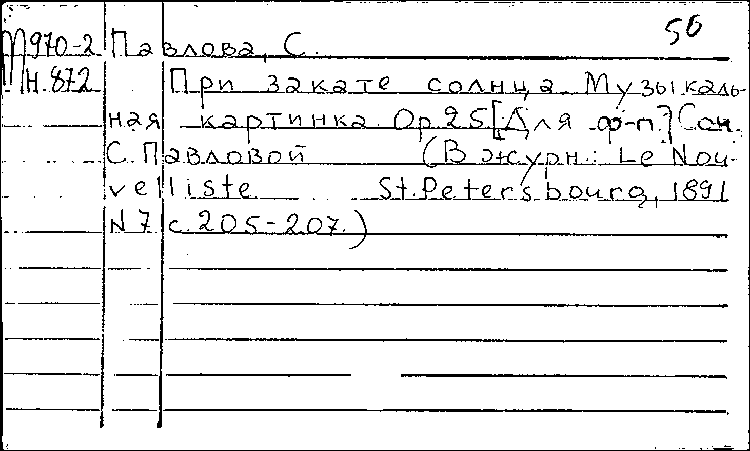 50
М970-2 Павлова, С.
Н.872 При закате солнца. Музыкаль-
ная картинка. Op.25 [Для ф-п.] Соч.
С. Павловой (В журн.: Le Nou-
velliste St.Petersbourg, 1891
N 7 с. 205-207.)